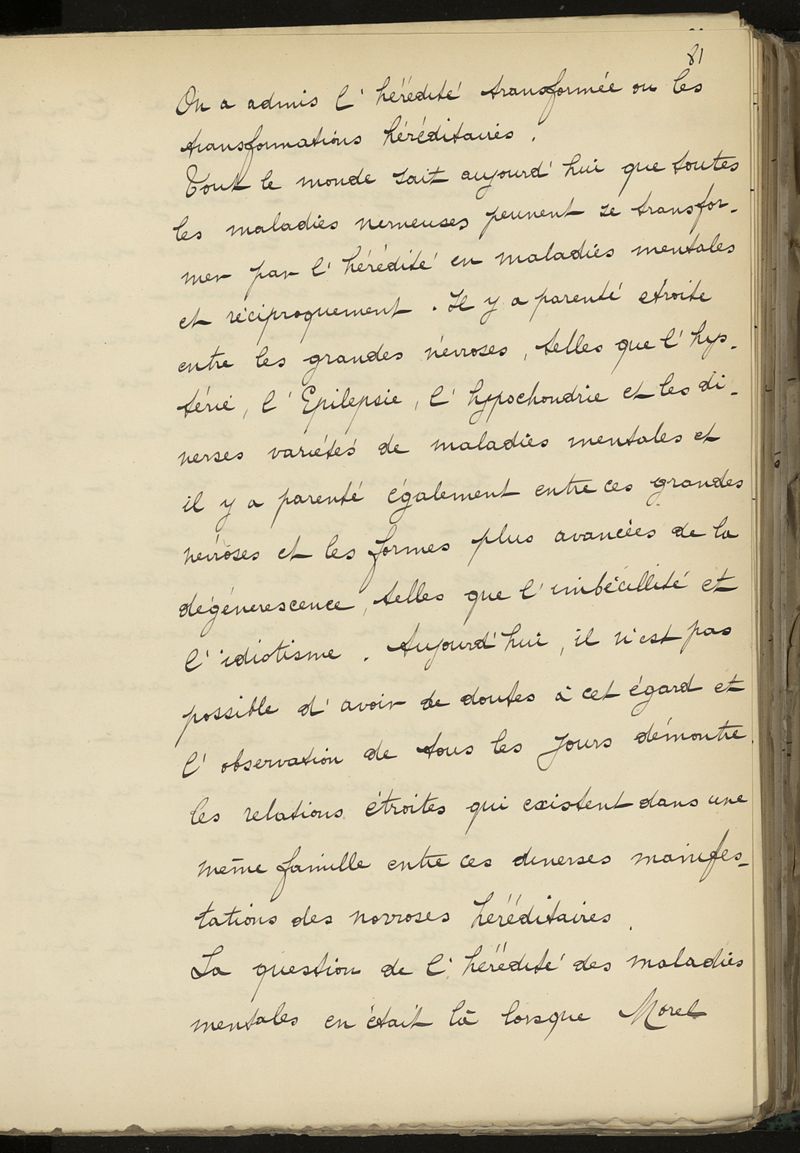 81
On a admis l'hérédité transformée ou les
transformations héréditaires.
Tout le monde sait aujourd'hui que toutes
les maladies nerveuses peuvent se transfor-
mer par l'hérédité en maladies mentales
et réciproquement. Il y a parenté étroite
entre les grandes névroses, telles que l'hys-
térie, l'Epilepsie, l'hypochondrie et les di-
verses variétés de maladies mentales et
il y a parenté également entre ces grandes
névroses et les formes plus avancées de la
dégénerescence, telles que l'imbécillité et
l'idiotisme. Aujourd'hui, il n'est pas
possible d'avoir de doutes à cet égard et
l'observation de tous les jours démontre
les relations étroites qui existent dans une
même famille entre ces diverses manifes-
tations des novroses héréditaires.
La question de l'hérédité des maladies
mentales en était là lorsque Morel